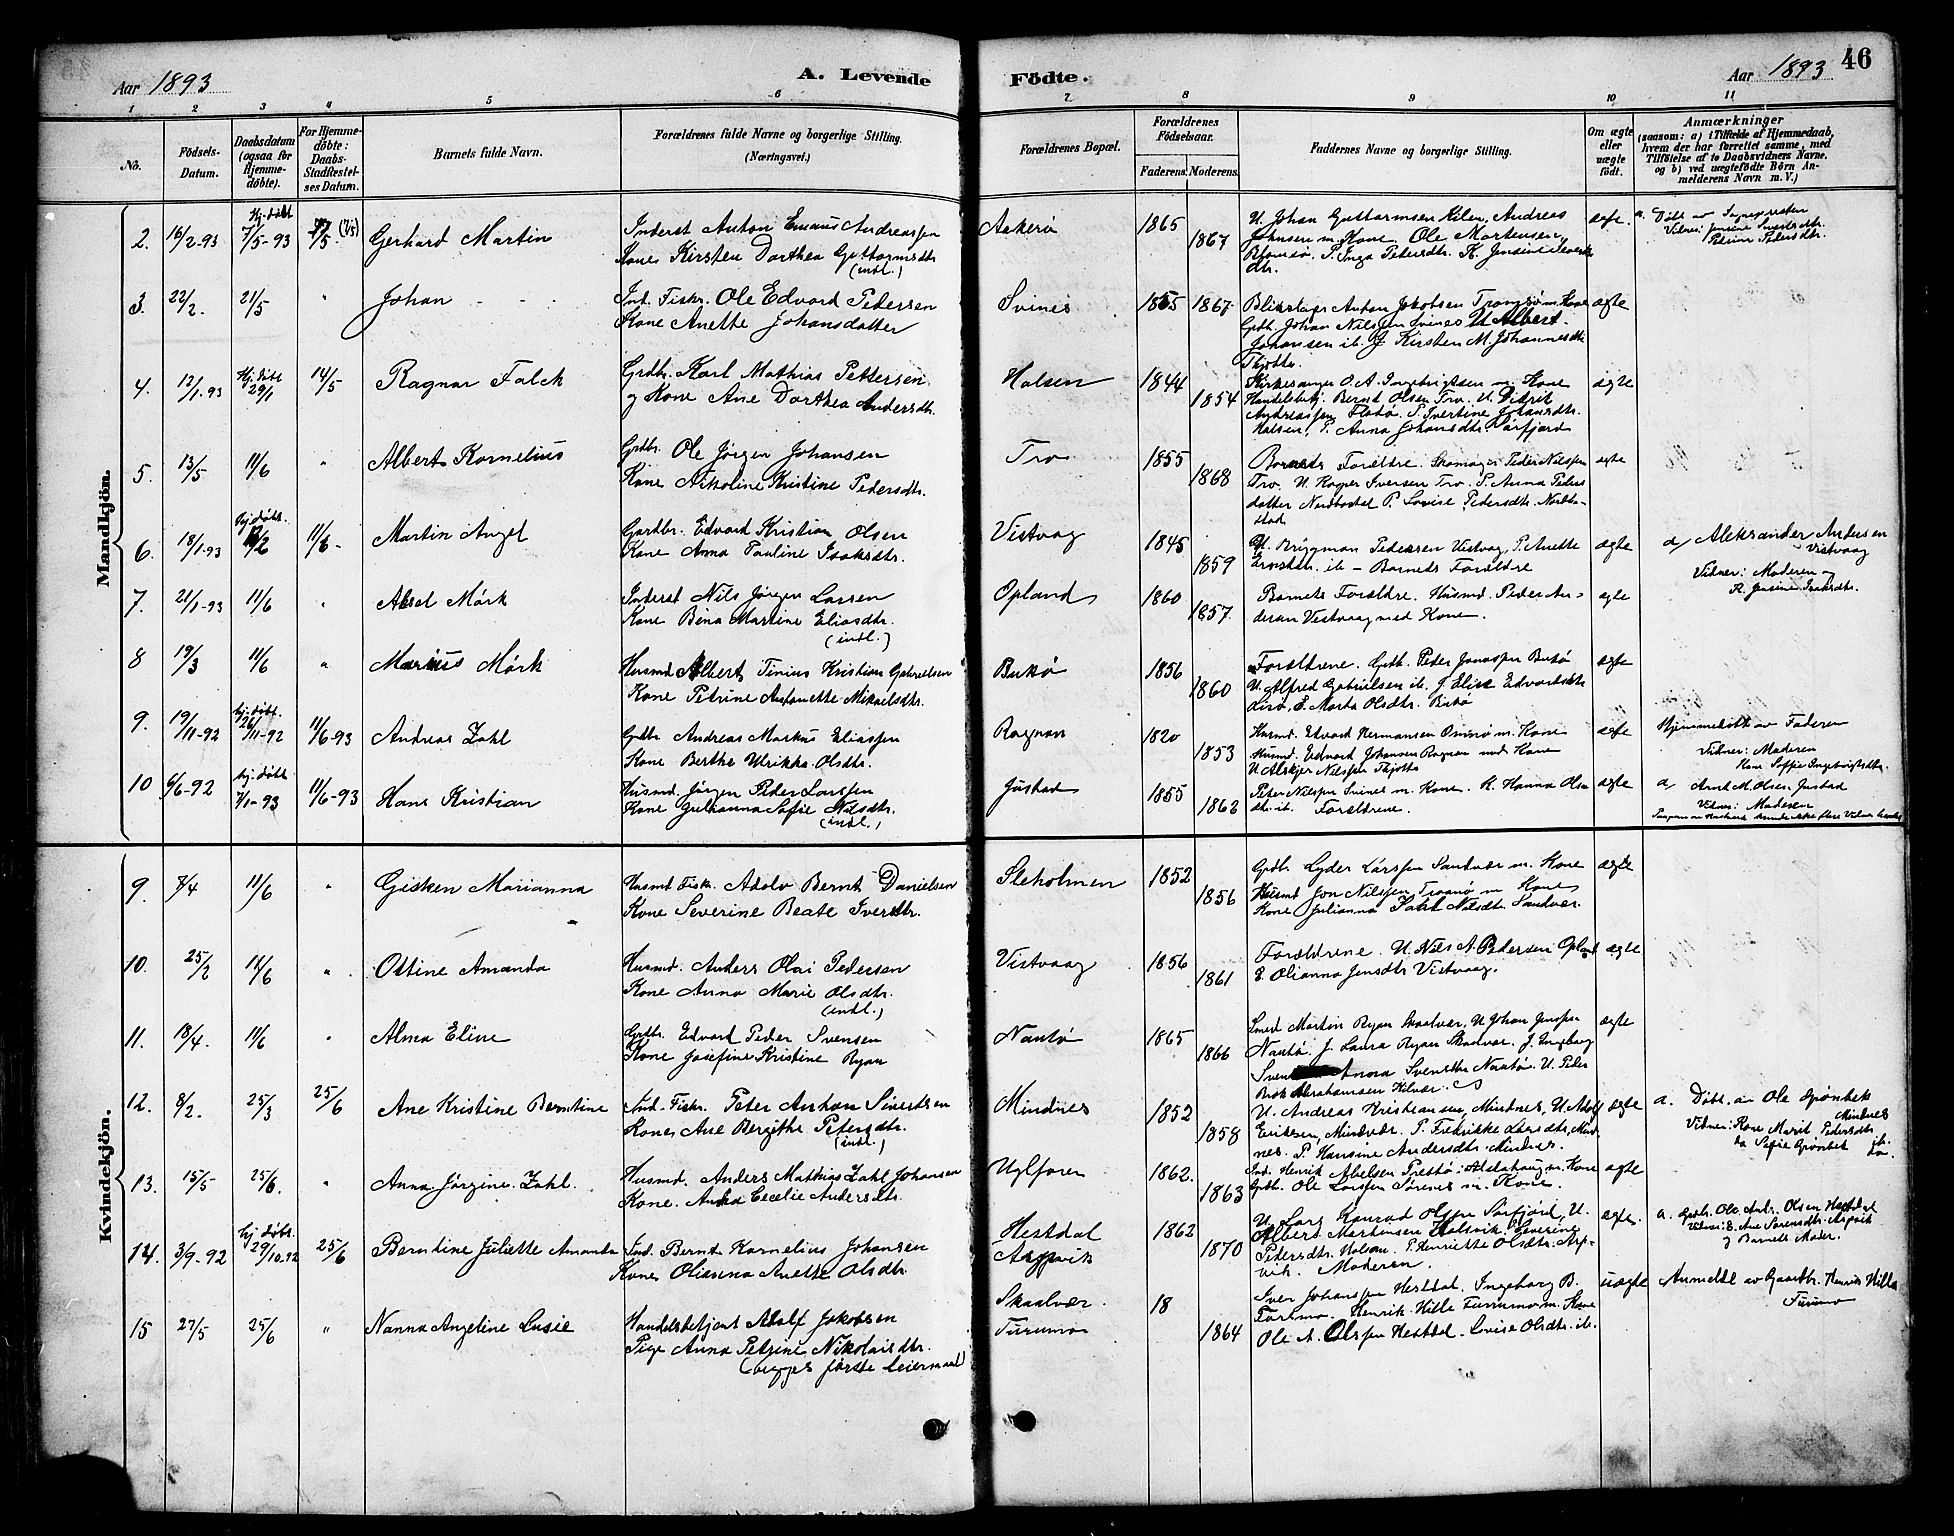 Aar 1893
A. Levende
Födte.
Aar 1893
46
1 2 3 4 5 6 7 8 9 10 11
No.
Födsels-Datum.
Daabsdatum (ogsaa for Hjemme-døbte).
For Hjemme-døbte: Daabs-Stadfæstel-ses Datum.
Barnets fulde Navn.
Forældrenes fulde Navne og borgerlige Stilling.
(Næringsvei.)
Forældrenes Bopæl.
Forældrenes Födselsaar.
Faderens. Moderens.
Faddernes Navne og borgerlige Stilling.
Om ægte eller uægte født.
Anmærkninger
(saasom: a) i Tilfælde af Hjemmedaab, hvem der har forrettet samme, med Tilföielse af to Daabsvidners Navne, og b) ved uægtefödte Börn An-melderens Navn m. V.)
Mandkjön.
2. 16/2-93 Hj. døbt 7/5-93 Gerhard Martin
Inderst Anton Emaus Andreassen
Kone Kirsten Dorthea Guttormsdtr.
(indl.)
Askerø 1865 1867
U. Johan Guttormsen Kilen, Andreas
Johnsen m. Kone Ole Mortensen,
Blomsø, P. Inga Pedersdtr. K. Jensine
dtr.
ægte.
a. Døbt av Sognepresten
3. 22/2. 21/5 " Johan
Ind. Fiskr. Ole Edvard Pedersen
Kone Anette Johansdatter
Svines 1865 1867
Anton Jakobsen m. Kone
Grdb. Johan Nilssen Svines U Albert
Johansen ib. J Kirsten M. Johannesdtr
Thjøtta.
ægte
4. 12/1.93 Hj. døbt 29/1 14/5 Ragnar Falck
Grdbr. Karl Mathias Pettersen
og Kone Ane Dorthea Andersdtr.
Halsen 1844 1854
Kirkesanger O. A. Ingebrigtsen m. Kone
Handelsbetj. Bernt Olsen Tro. U. Didrik
Andreassen Flatø. P. Ivertine Johansdtr.
Halsen, P. Anna Johansdtr. Sørfjord
ægte
5. 13/5 11/6 " Albert Kornelius
Grdbr. Ole Jørgen Johansen
Kone Nikoline Kristine Pedersdtr.
Tro 1855 1868
Barnets Forældre. Skomager Peder Nilssen
Tro. U. Kasper Iversen Tro. P. Anna Peders
datter P. Lovise Pedersdtr.
stad
ægte
6. 18/1.93 hj. døbt. 11/6- Martin Angel
Gardbr. Edvard Kristian Olsen
Kone Anna Pauline Isaksdtr.
Vistvaag 1845 1859
U. Briggman Pedersen Vistvaag, P. Anette
ib - Barnets Forældre
ægte
a, Aleksander Andersen
Vistvaag
Vidner: Moderen og
K. Jensine Isaksdtr.
7. 21/1-93 11/6 " Aksel Mörk
Inderst Nils Jørgen Larsen
Kone Bina Martine Eliasdtr.
(indl.)
Opland 1860 1857.
Barnets Forældre. Husmd. Peder An-
dersen Vistvaag med Kone.
ægte
8 19/3 11/6 " Marius Mörk
Husmd Albert Tinius Kristian Gabrielsen
Kone Petrine Antonette Mikaelsdtr.
Bukø 1856 1860
Forældrene. Grdb. Peder Jonassen Bukø
U. Alfred Gabrielsen ib. J. Elise Edvardsdtr
S. Marta Olsdtr. Bukø
ægte
9. 19/11-92 hj. døbt. 26/11-92 11/6-93 Andreas Zahl
Grdbr Andreas Markus Eliassen
Kone Berthe Ulrikka Olsdtr.
Rognan 1820 1853
Husmd. Edvard Hermansen Omsø m. Kone
Husmd. Edvard Johansen Rognan med Kone
U. Nilssen Thjøtta
ægte
Hjemmedøbt av Faderen
Vidner: Moderen
Kone Soffie Ingebrigtsdtr.
10 6/6-92 hj. døbt 7/1-93 11/6-93 Hans Kristian
Husmd. Jörgen Peder Larssen
Kone Julianna Sofie Nilsdtr.
(indl.)
Justad 1855 1862
Peter Nilssen Svines m. Kone. K. Hanna Ols
dtr. ib. Forældrene.
ægte
a, Arnt M. Olsen Justad
Vidner: Moderen
Kvindekjön.
9. 7/4 11/6 " Gidken Marianna
Husmd Fiskr. Adolv Bernt Danielsen
Kone Severine Beate Iversdtr.
Sleholmen 1852 1856
Grdb. Lyder Larssen Sandvær m. Kone
Husmd Jon Nilssen, m Kone
Kone Julianna Zahl Nilsdtr. Sandvær.
ægte
10. 25/2 11/6 " Ottine Amanda
Husmd. Anders Olai Pedersen
Kone Anna Marie Olsdtr.
(indl.)
Vistvaag 1856 1861
Forældrene. U. Nils A. Pedersen Opland
E. Olianna Jensdtr Vistvaag.
ægte
11. 18/4. 11/6 " Alma Eline
Grdbr. Edvard Peder Svensen
Kone Josefine Kristine Ryan
Nautø 1865 1866
Smed Martin Ryan Skaalvær, U Johan Jenssen
Nautø. J. Laura Ryan Skaalvær. J. Ingeborg
Svens Anna Svensdtr Nautø. U. Peder
Brok Abrahamsen
ægte
12. 8/2. 25/3 25/6 Ane Kristine Berntine
Ind. Fiskr. Peter Anton Sivertsen
Kone Ane Bergithe Petersdtr.
(indl.)
Mindnes 1852 1858
U. Andreas Kristiansen, Mindnes, U. Adolf
Eriksen, Mindvær. P. Fredrikke Larsdtr, Mind
nes. P. Hansine Andersdtr. Mindnes.
ægte
a. Døbt av Ole Grønbek
Mindnes
Vidner: Kone Marit Pedersdtr
do Sofie Grønbek do.
13. 15/5 25/6. " Anna Jörgine Zahl.
Husmd. Anders Mathias Zahl Johansen
Kone. Cecelie Andersdtr.
1862. 1863
Ind. Henrik Abelsen Prestø. Alstahaug m. Kone
Grdb. Ole Larssen m. Kone.
ægte
14. 3/9-92 hj. døbt. 29/10-92 25/6 Berntine Juliette Amanda
Ind. Bernt Kornelius Johansen
Kone Olianna Anette Olsdtr.
Hestdal
Aspvik
1862 1870
U. Lars Konrad Olssen Sørfjord, U.
Albert Martinsen Halsvik. Severine
Petersdtr. Halsan. P. Henriette Olsdtr. Asp-
vik. Moderen.
ægte.
a. Grdb. Ole Andr. Olsen Hestdal
Vidner: E. Ane Sørensdtr. Aspvik
og Barnets Moder.
15 27/5 25/6 " Nanna Angeline Lusie
Handelsbetjent Adolf Jakobsen
Pige Anna Petrine Nikolaisdtr.
(begges første leiermaal)
Skaalvær. 18
Furumo 1864
Iver Johanssen Hestdal. Ingeborg B.
Henrik Hilla Furumo m. Kone
Ole A. Olssen Hestdal. Lovise Olsdtr. ib.
uægte
Anmeldt av Gaardbr. Henrik Hilla
Furumo